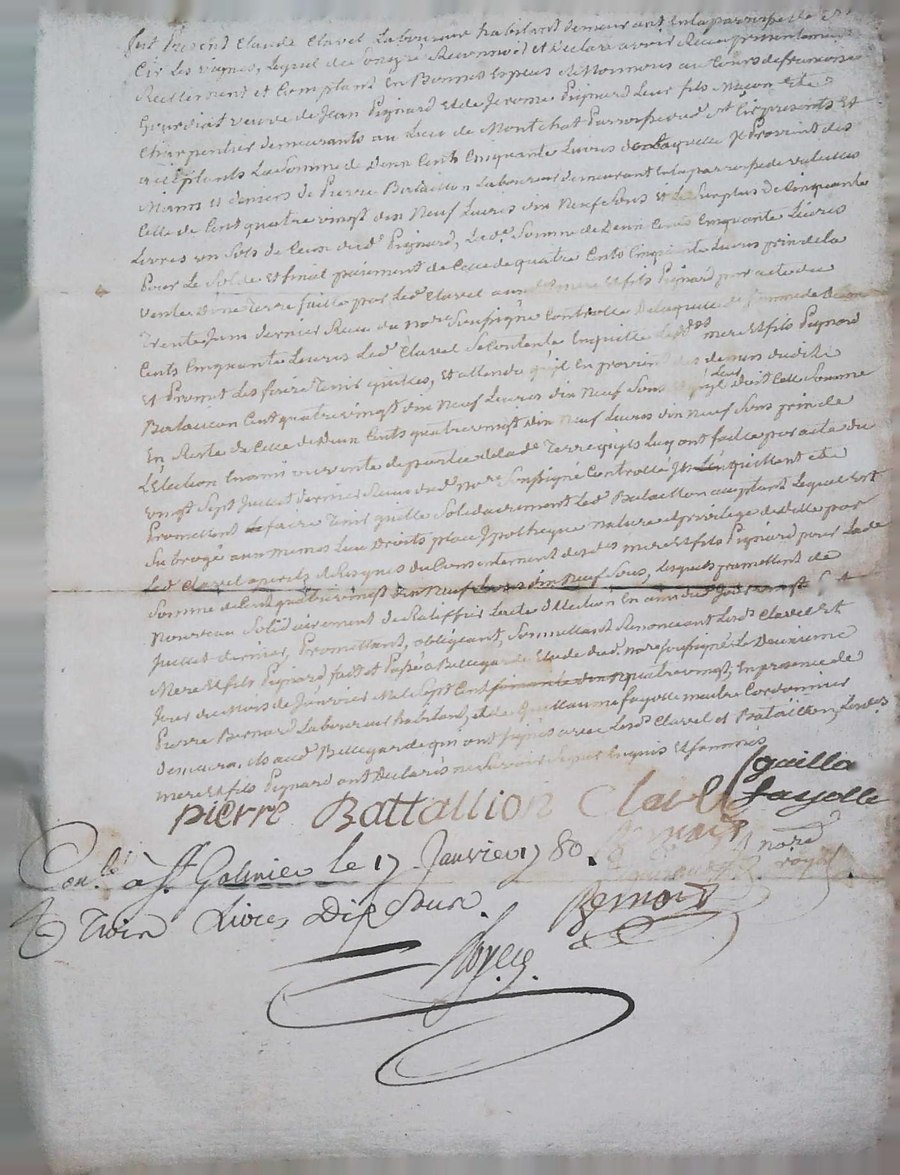 fut Présent Claude Clavel Laboureur habitant demeurant En la parroisse de St
Cir les vignes, Lequel de gré a Reconnu et declaré avoir Reçu presentement
Reellement et Comptant En Bonnes Especes et Monnoies au Cours de france
veuve de Jean Pignard et de Jerome Pignard Leur fils Maçon et
Charpentier demeurants au Lieu de Montchat Parroisse dud St Cir presents Et
acceptants La Somme de Deux Cents Cinquante Livres de laquelle Il Provient des
Mains et deniers de Pierre Bataillon Laboureur demeurant En la parroisse de
Celle de Cent quatre vingt dix Neuf Livres dix Neuf Sous Et le Surplus de Cinquante
Livres un Sols de Ceux dud. Pignard, Lad. Somme de Deux Cents Cinquante Livres
Pour Le Solde et finiel paiement de Celle de quatre Cents Cinquante Livres prix de la
vente d'une Terre faitte par Led. Clavel auxd. mere et fils Pignard par acte du
Trente Juin dernier Reçu du Nore Soussigné Controllé De laquelle dt Somme de Deux
Cents Cinquante Livres Led. Clavel Se Contente En quitte Lesd. mere et fils Pignard
Et Promet Les faire Tenir quittes, Et attendu qu'il En provient des deniers dudit
Bataillon Cent quatre vingt dix Neuf Livres dix Neuf Sous et qu'il Leur doit Cette Somme
En Reste de Celle de Deux Cents quatre vingt dix Neuf Livres dix Neuf Sous prix de
L'Election En ami vente de partie de lade Terre qu'ils Luy ont faitte par acte du
vingt Sept Juillet dernier Reçu dud. Nore Soussigné Controllé Ils L'en quittent et
Promettent faire Tenir quitte Solidairement Led. Bataillon acceptant Lequel Est
Subrogé aux mêmes Lieu Droits place Ipotheque Nature et privilege de
Led. Clavel aperils et Risques du Consentement desdes mere et fils Pignard pour Lade
Somme de Cent quatre vingt dix Neuf Livres dix Neuf Sous, Lesquels promettent de
Nouveau Solidairement de Ratiffier Lacte d'Election En ami dud. Jour vingt Sept
Juillet dernier, Promettant, obligeant, Soumettant Renonceant Lesd. Clavel Et
Mere Et fils Pignard fait et Passé à Bellegarde Etude dud. Nore Soussigné Le Deuxieme
Jour du Mois de Janvier Mil Sept Cent quatre vingt, En presence de
Pierre Bernard Laboureur habitant, et de Guillaume fayolle maitre Cordonnier
demeurants aud. Bellegarde qui ont Signés avec Lesd. Clavel et Bataillon, Lesdes
mere et fils Pignard ont Declarés ne Savoir Signer Enquis Et Sommés
pierre Battallion Clavel guilla
fayolle
Bernard nore
royal
Conlé à St Galmier le 17 Janvier 1780.
Trois Livres Dix Sous. Bernard
Royer.